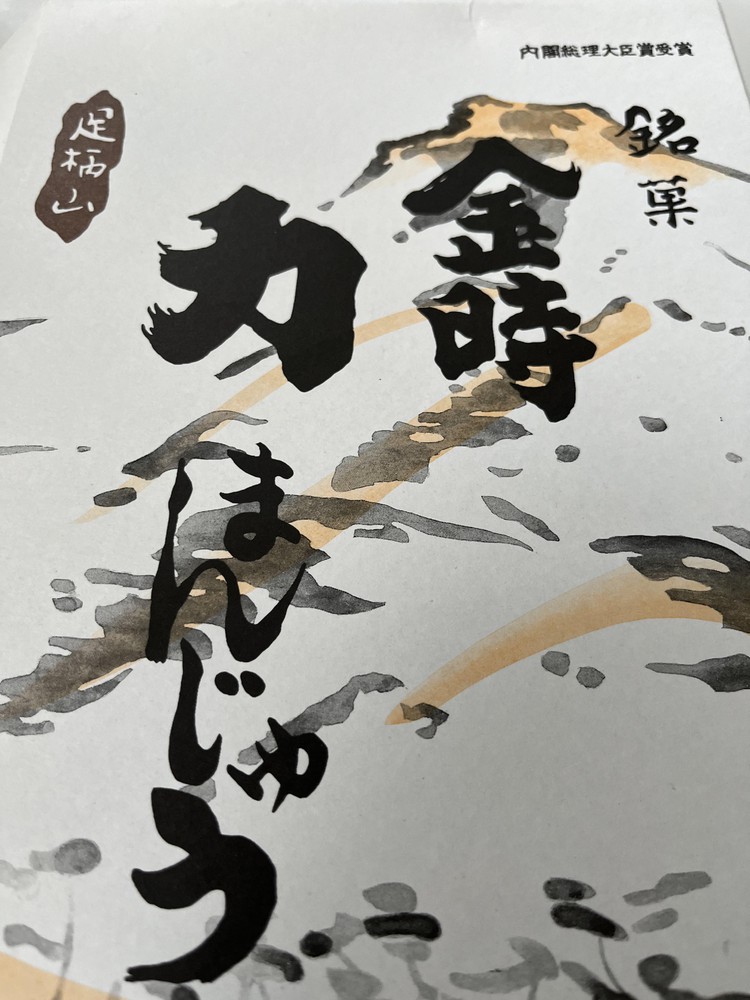 内閣総理大臣賞受賞
銘菓
金時
力まんじゅう
足柄山